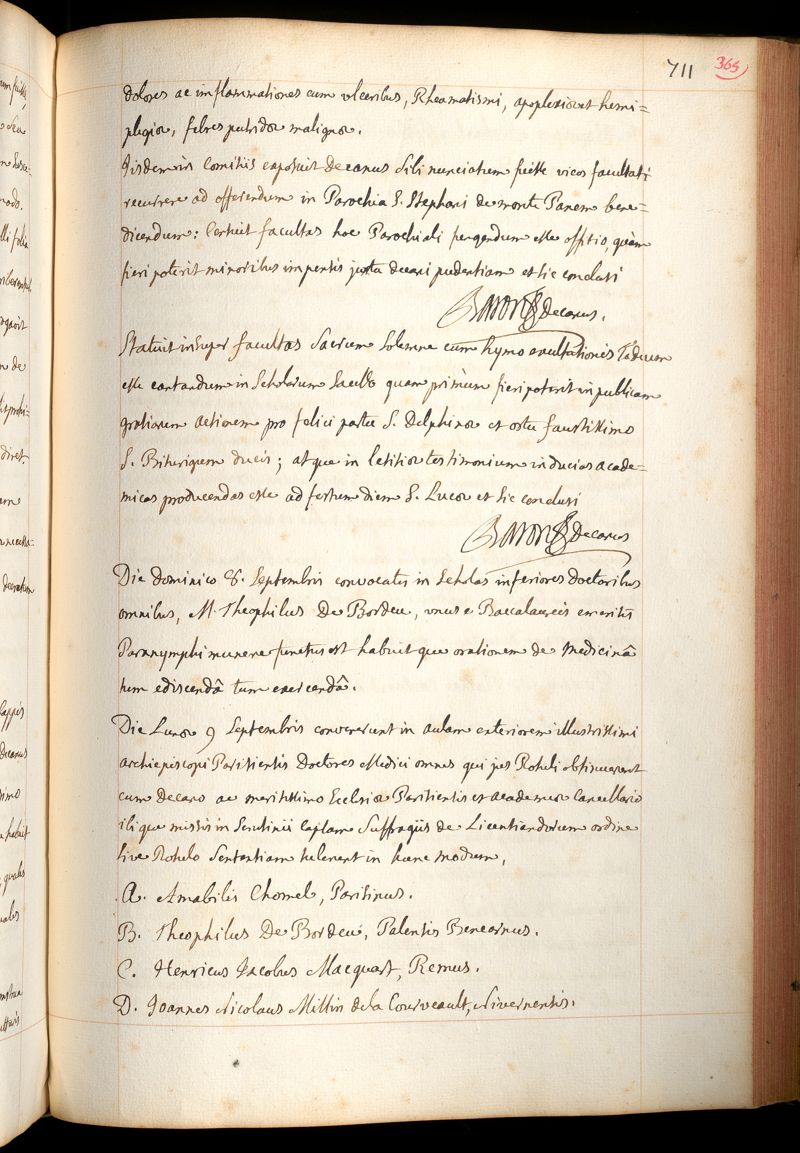 711 365
dolores ac inflammationes cum ulceribus, Rheumatismi, apoplexiae et hemi=
plegiae, febres putridae malignae.
Iisdem in Comitiis exposuit Decanus sibi nunciatum fuisse vices facultati
recurrere ad offerendum in Parochia S. Stephani de monte Panem bene=
dicendum: Censuit facultas hoc Parochiali fungendum esse officio, quàm
fieri poterit minoribus impensis juxta decani prudentiam et sic conclusi
Baron Decanus.
Statuit insuper facultas Sacrum Solemne cum hymo exultationis Te deum
esse cantandum in Scholarum Sacello quam primùm fieri poterit in publicam
gratiarum actionem pro felici partu S. Delphinae et ortu faustissimo
S. Biturigum ducis; atque in letitiae testimonium inducias acade=
micas producendas esse ad festum diem S. Lucae et sic conclusi
Baron Decanus
Die dominico 8. Septembris convocatis in Scholas inferiores doctoribus
omnibus, M. Theophilus De Bordeu, unus e Baccalaureis emeritis
Paranymphi munere functus est habuitque orationem de Medicinâ
tum ediscendâ tum exercendâ.
Die Lunae 9 Septembris convenerunt in aulam exteriorem illustrissimi
archiepiscopi Parisiensis Doctores Medici omnes qui jus Rotuli obtinuerunt
cum Decano ac meritissimo Eclesiae Parisiensis et academiae Cancellario
iique missis in Scrutinii Capsam Suffragiis de Licentiandorum ordine
sive Rotulo Sententiam tulerunt in hunc modum,
A. Amabilis Chomel, Parisinus.
B. Theophilus De Bordeu, Palensis Benearnus.
C. Henricus Jacobus Macquart, Remus.
D. Joannes Nicolaus Millin de la Courveault, Nivernensis.